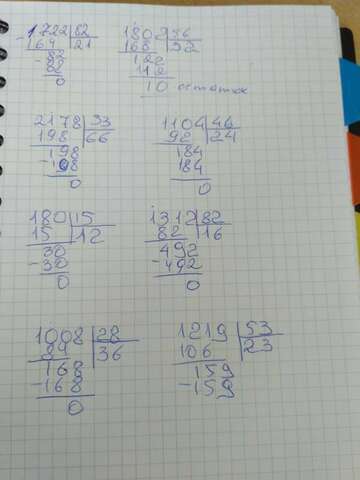 1722 82
-164 21
82
-82
0
1802 56
168 32
122
112
10 остаток
2178 33
198 66
198
-198
0
1104 46
92 24
184
184
0
180 15
15 12
30
-30
0
1312 82
82 16
492
-492
0
1008 28
84 36
168
-168
0
1219 53
106 23
159
-159